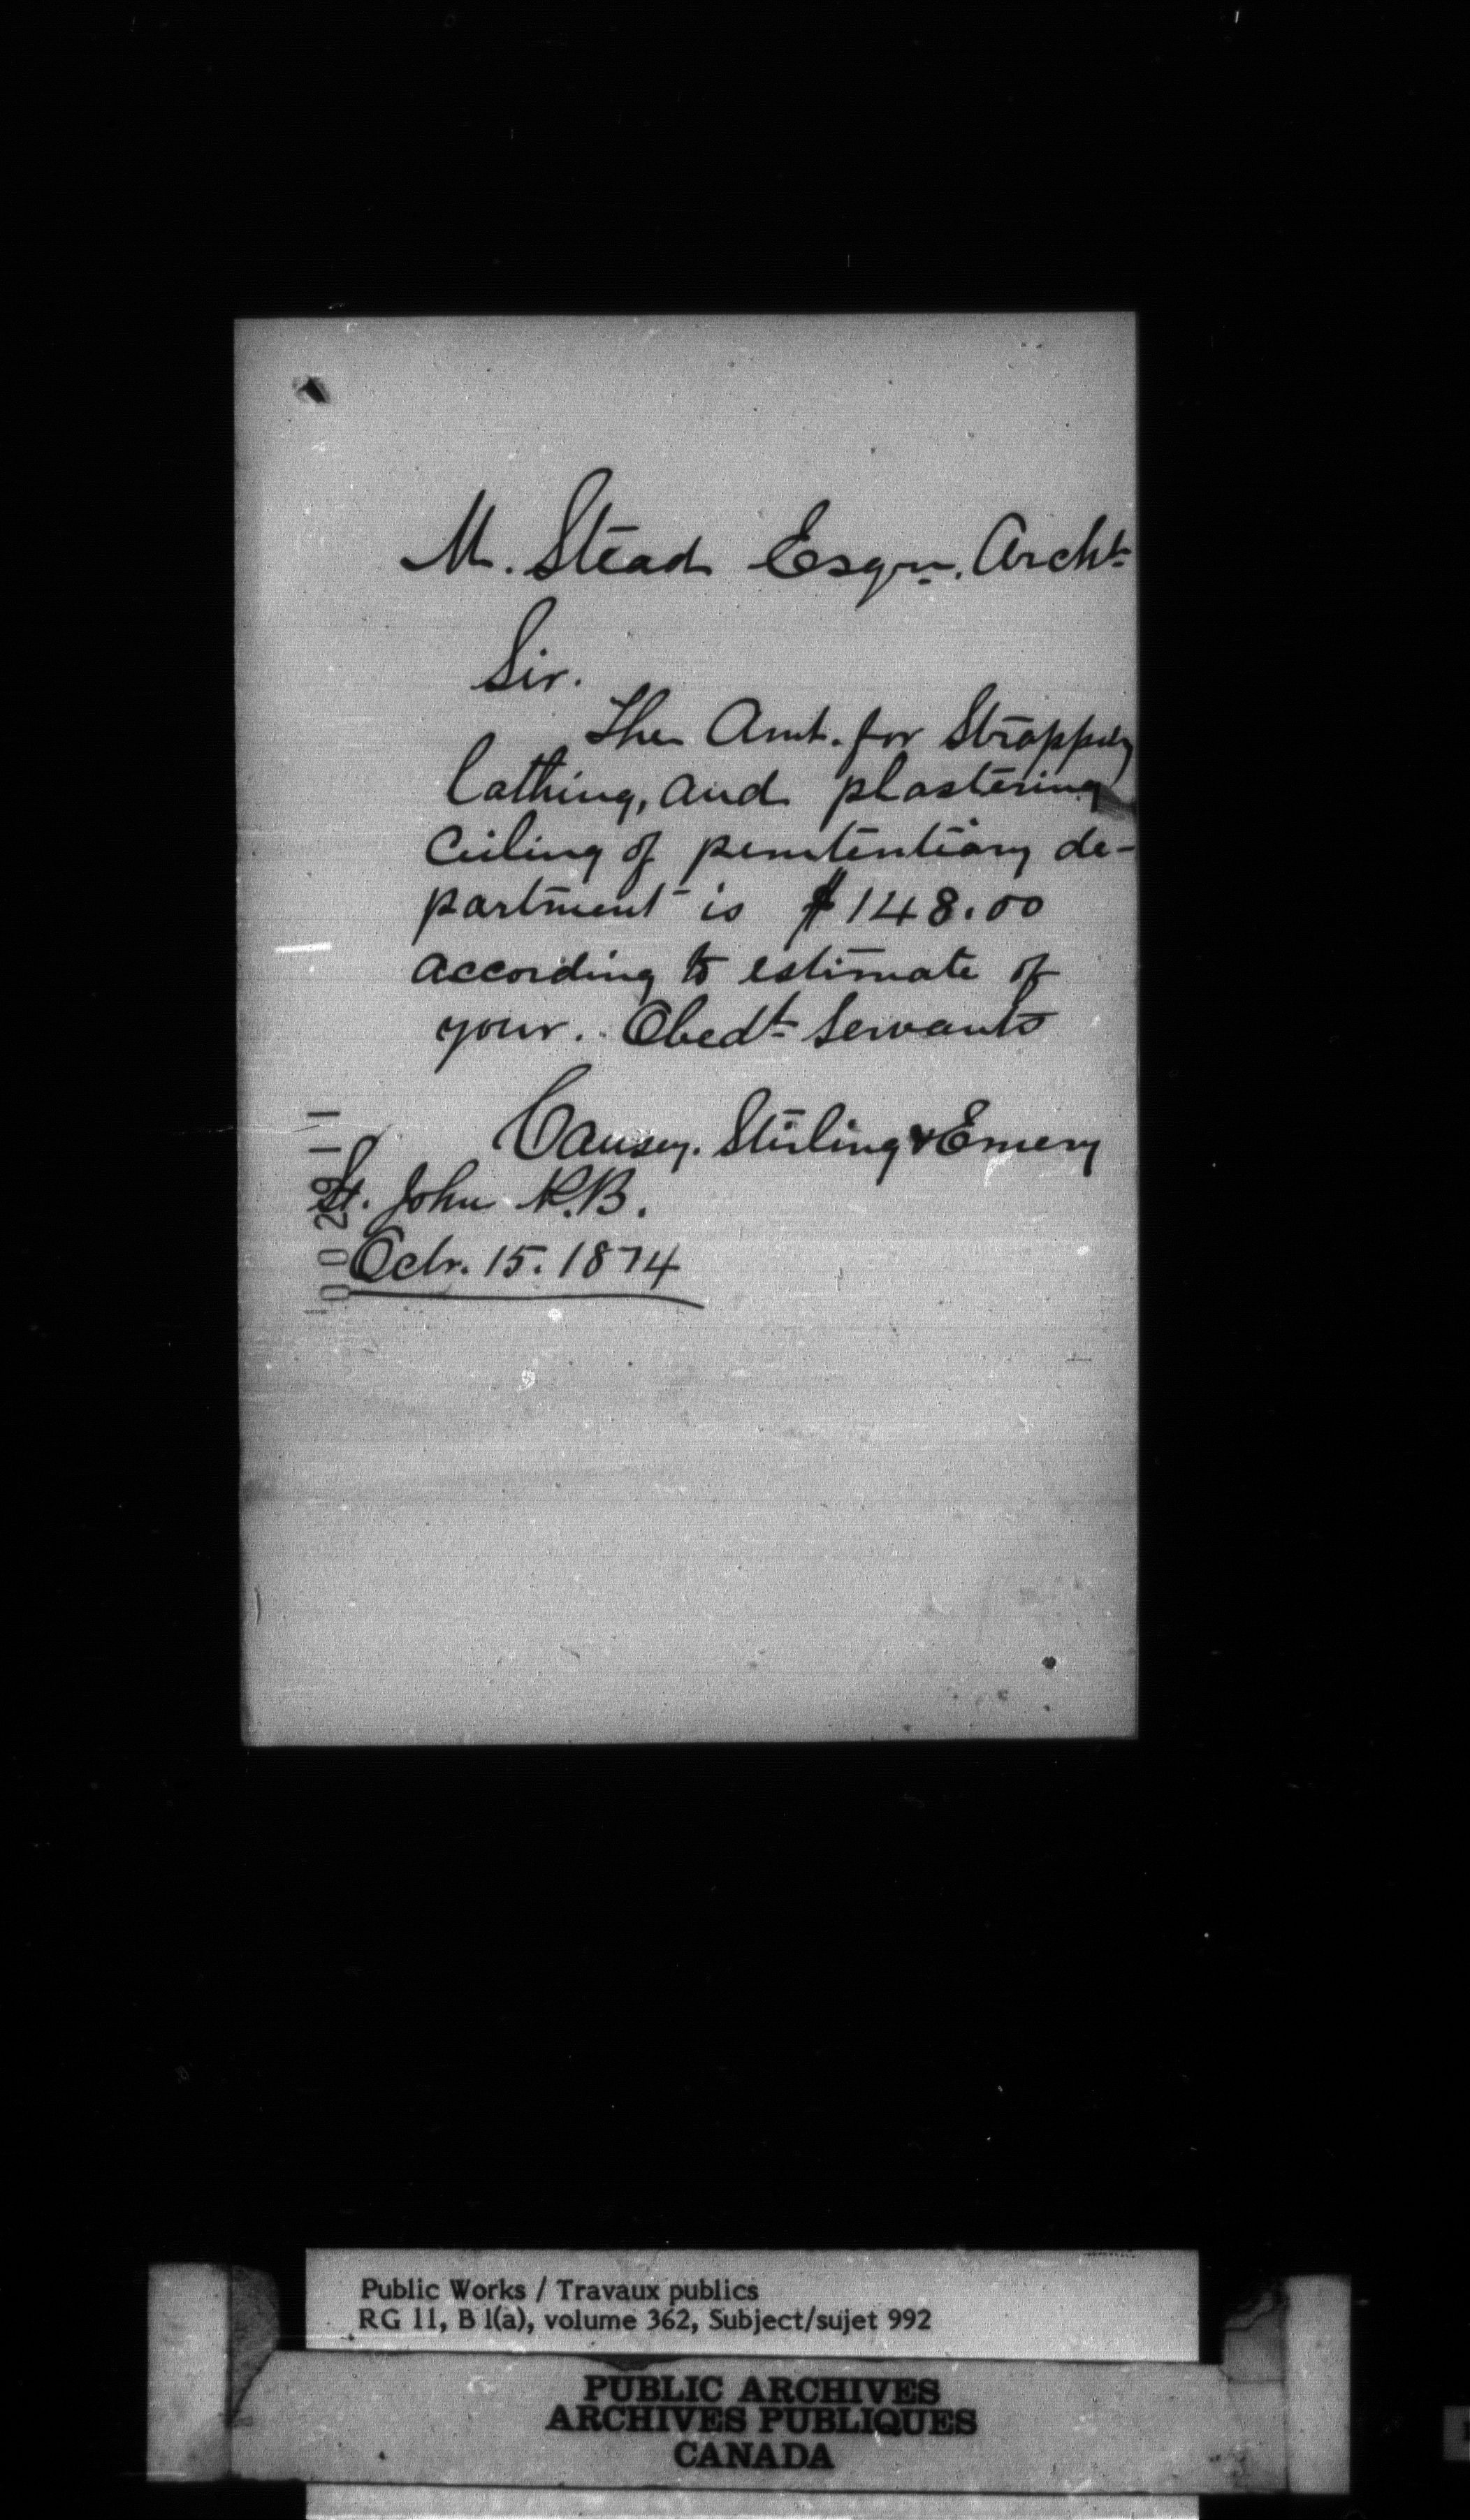 M. Stead Esqre. Archt
Sir.
The Amt. for Strapping
lathing, and plastering
Ceiling of penitentiary de-
partment is $148.00
according to estimate of
your. Obedt Servants
Causey. Stirling & Emery
St. John N.B.
Octr. 15. 1874
Public Works / Travaux publics
RG 11, B 1(a), volume 362, Subject/sujet 992
PUBLIC ARCHIVES
ARCHIVES PUBLIQUES
CANADA